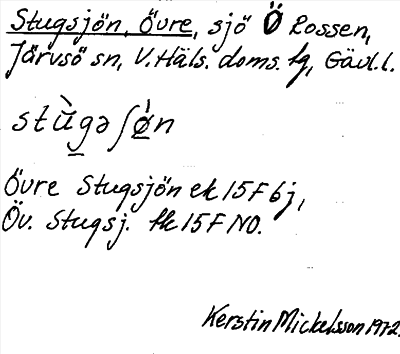 Stugsjön, Övre, sjö Ö Rossen,
Järvsö sn, V. Häls. doms. tg, Gävl. l.
stù̱gə ʃø̱̀n
Övre Stugsjön ek 15F 6j,
Öv. Stugsj. tk 15F NO.
Kerstin Mickelsson 1972.